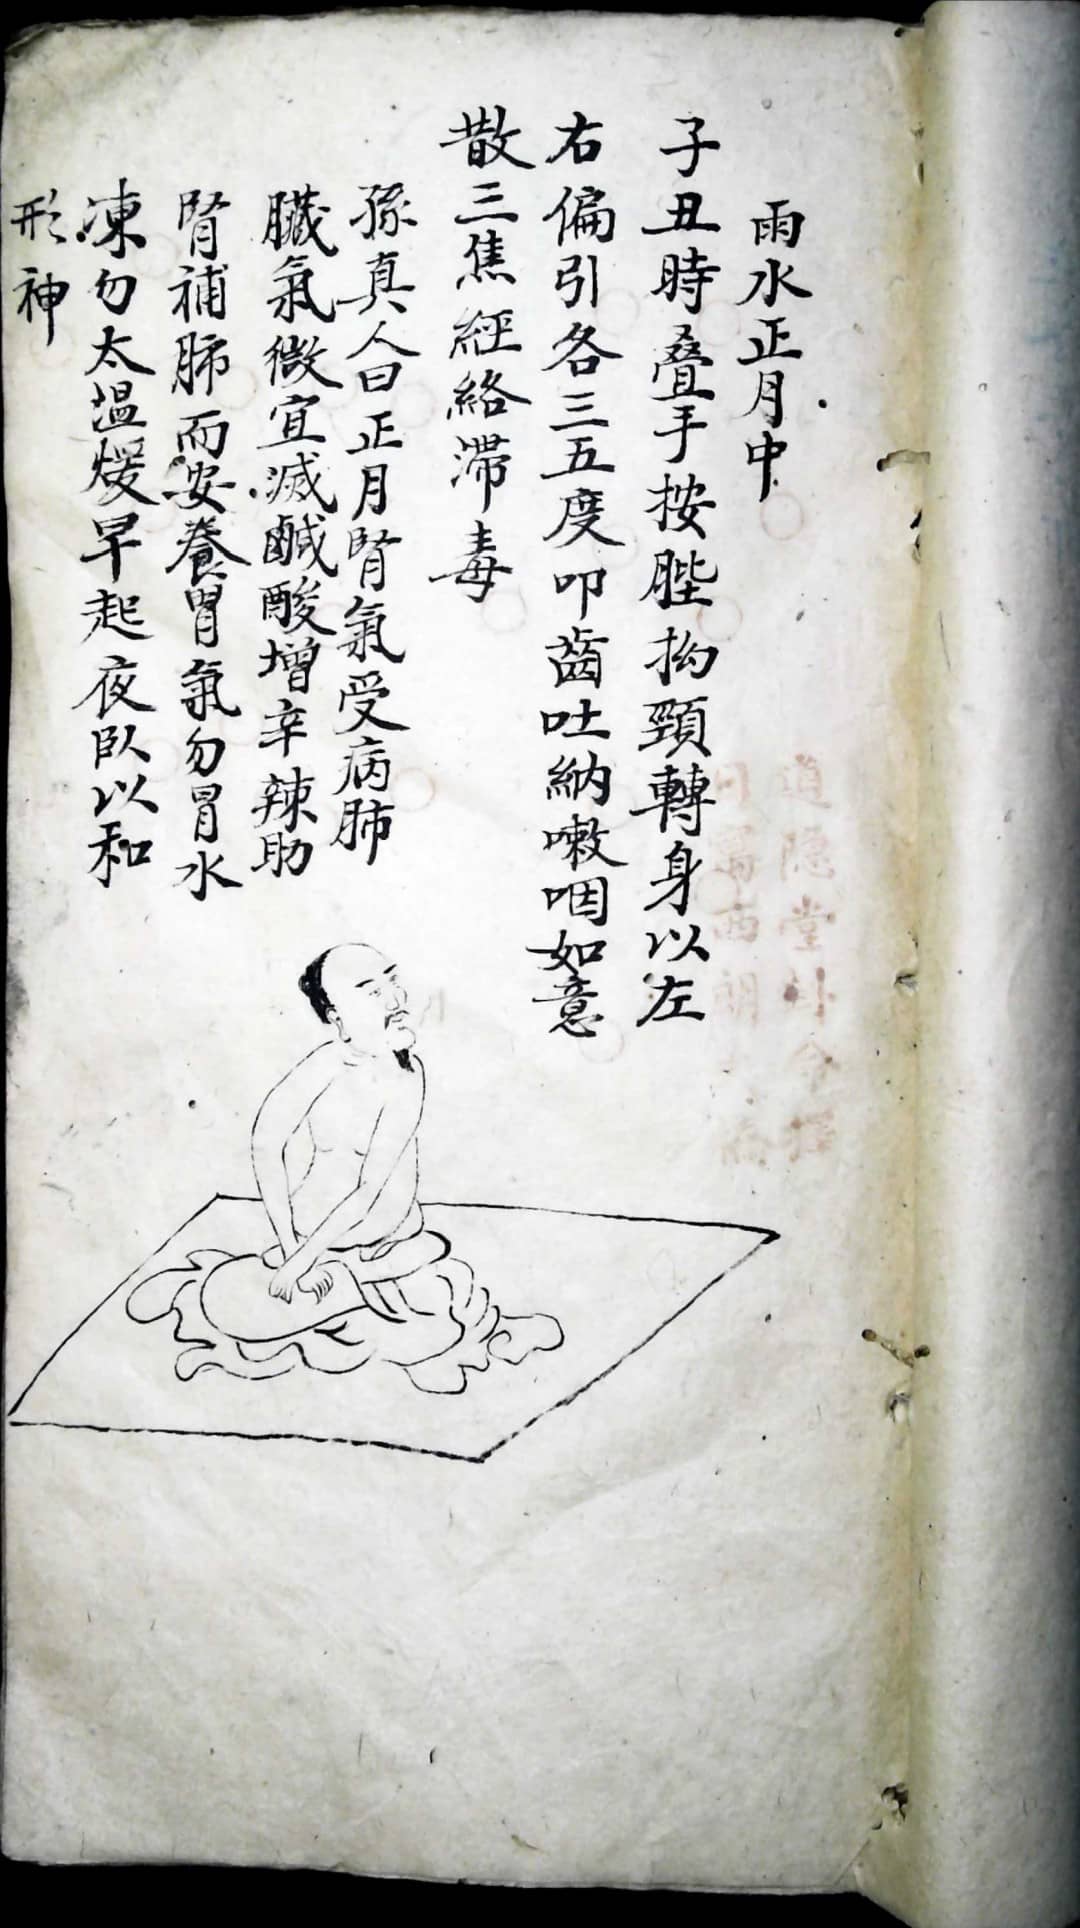 雨水正月中
子丑時叠手按䏶拗頸轉身以左
右偏引各三五度叩齒吐納嗽咽如意
散三焦經絡滯毒
孫真人曰正月腎氣受病肺
臓氣微宜減鹹酸增辛辣助
腎補肺而安養胃氣勿冒水
凍勿太温煖早起夜臥以和
形神